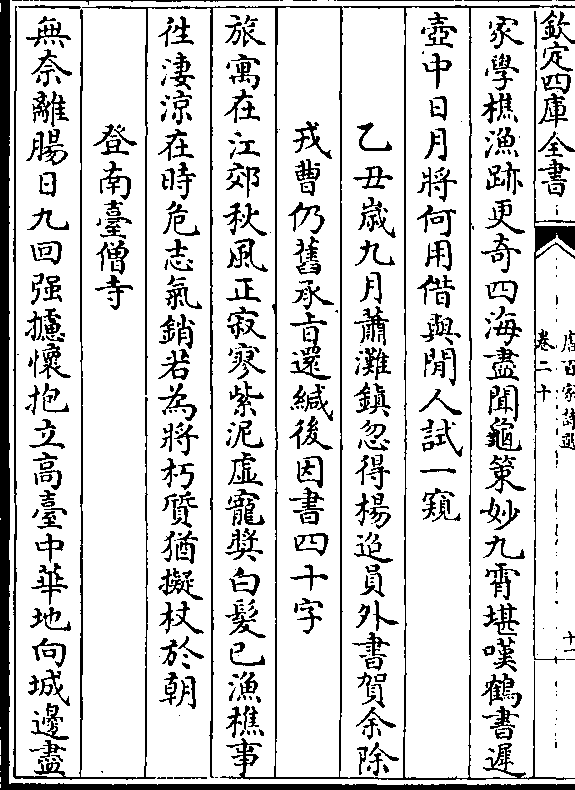 欽定四庫全書
唐百家詩選
卷二十
十一
家學樵漁跡更奇四海盡聞龜策妙九霄堪嘆鶴書遲
壺中日月將何用借與閒人試一窺
乙丑嵗九月蕭灘鎮忽得楊迨員外書賀余除
戎曹仍舊承旨還緘後因書四十字
旅寓在江郊秋風正寂寥紫泥虛寵奬白髮已漁樵事
徃淒涼在時危志氣銷若為將朽質猶擬杖於朝
登南臺僧寺
無奈離腸日九回强攄懷抱立高臺中華地向城邊盡